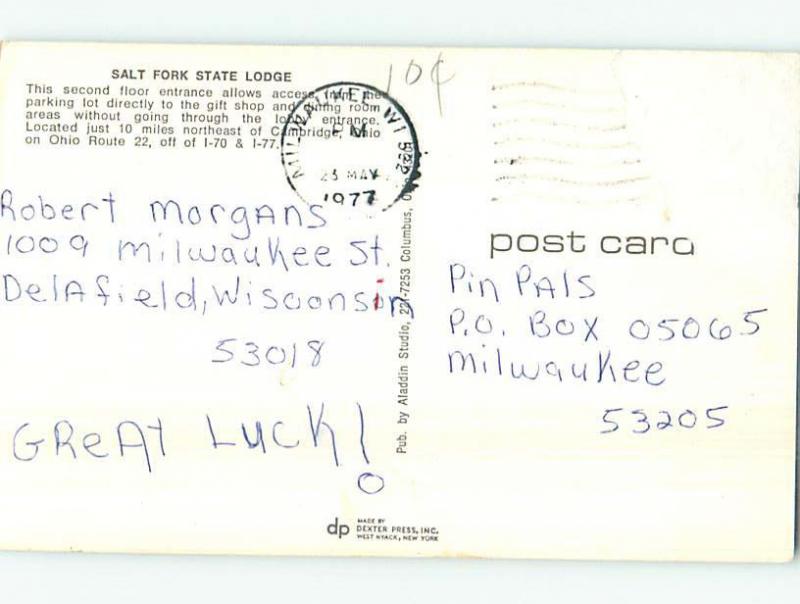 SALT FORK STATE LODGE
This second floor entrance allows access from the
parking lot directly to the gift shop and dining room
areas without going through the lobby entrance.
Located just 10 miles northeast of Cambridge, Ohio
on Ohio Route 22, off of I-70 & I-77.
10¢
MILWAUKEE, WI
PM
23 MAY
1977
Robert Morgans
1009 Milwaukee St.
Delafield, Wisconsin
53018
GREAT LUCK!
Pub. by Aladdin Studio, 221-7253 Columbus, Ohio 43201
post card
Pin PAls
P.O. BOX 05065
Milwaukee
53205
dp
MADE BY
DEXTER PRESS, INC.
WEST NYACK, NEW YORK